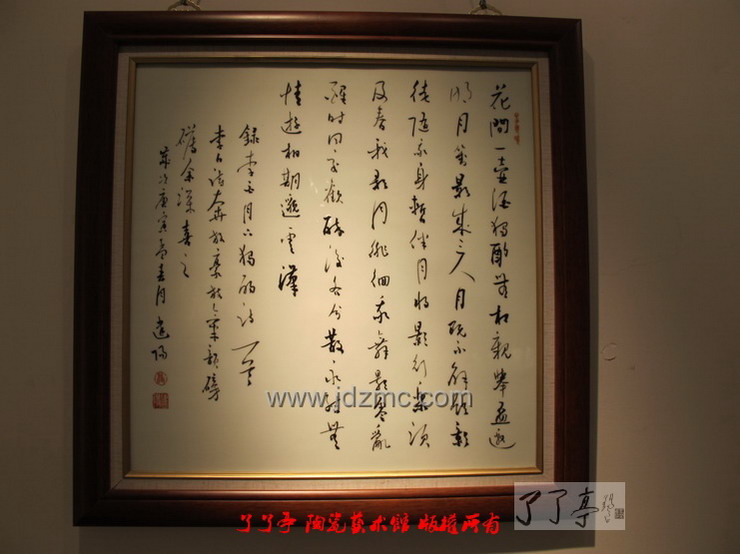 花間一壺酒獨酌無相親舉盃邀
明月對影成三人月既不解飲影
徒隨我身暫伴月將影行樂須
及春我歌月徘徊我舞影零亂
醒時同交歡醉後各分散永結無
情遊相期邈雲漢
錄李白月下獨酌詩一首
李白詩奔放豪放氣韻磅
礴余深喜之
歲次庚寅年春月
www.jdzmc.com
了了亭 陶瓷艺术馆 版权所有
了了亭